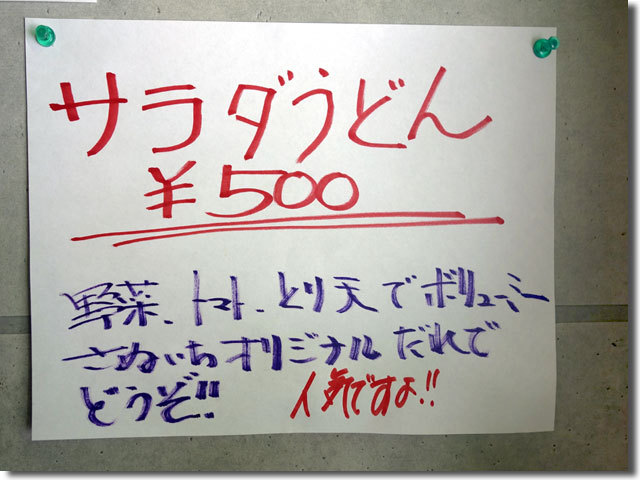 サラダうどん
¥500
野菜、トマト、とり天でボリューミー
さぬいちオリジナルだれで
どうぞ!! 人気ですよ!!